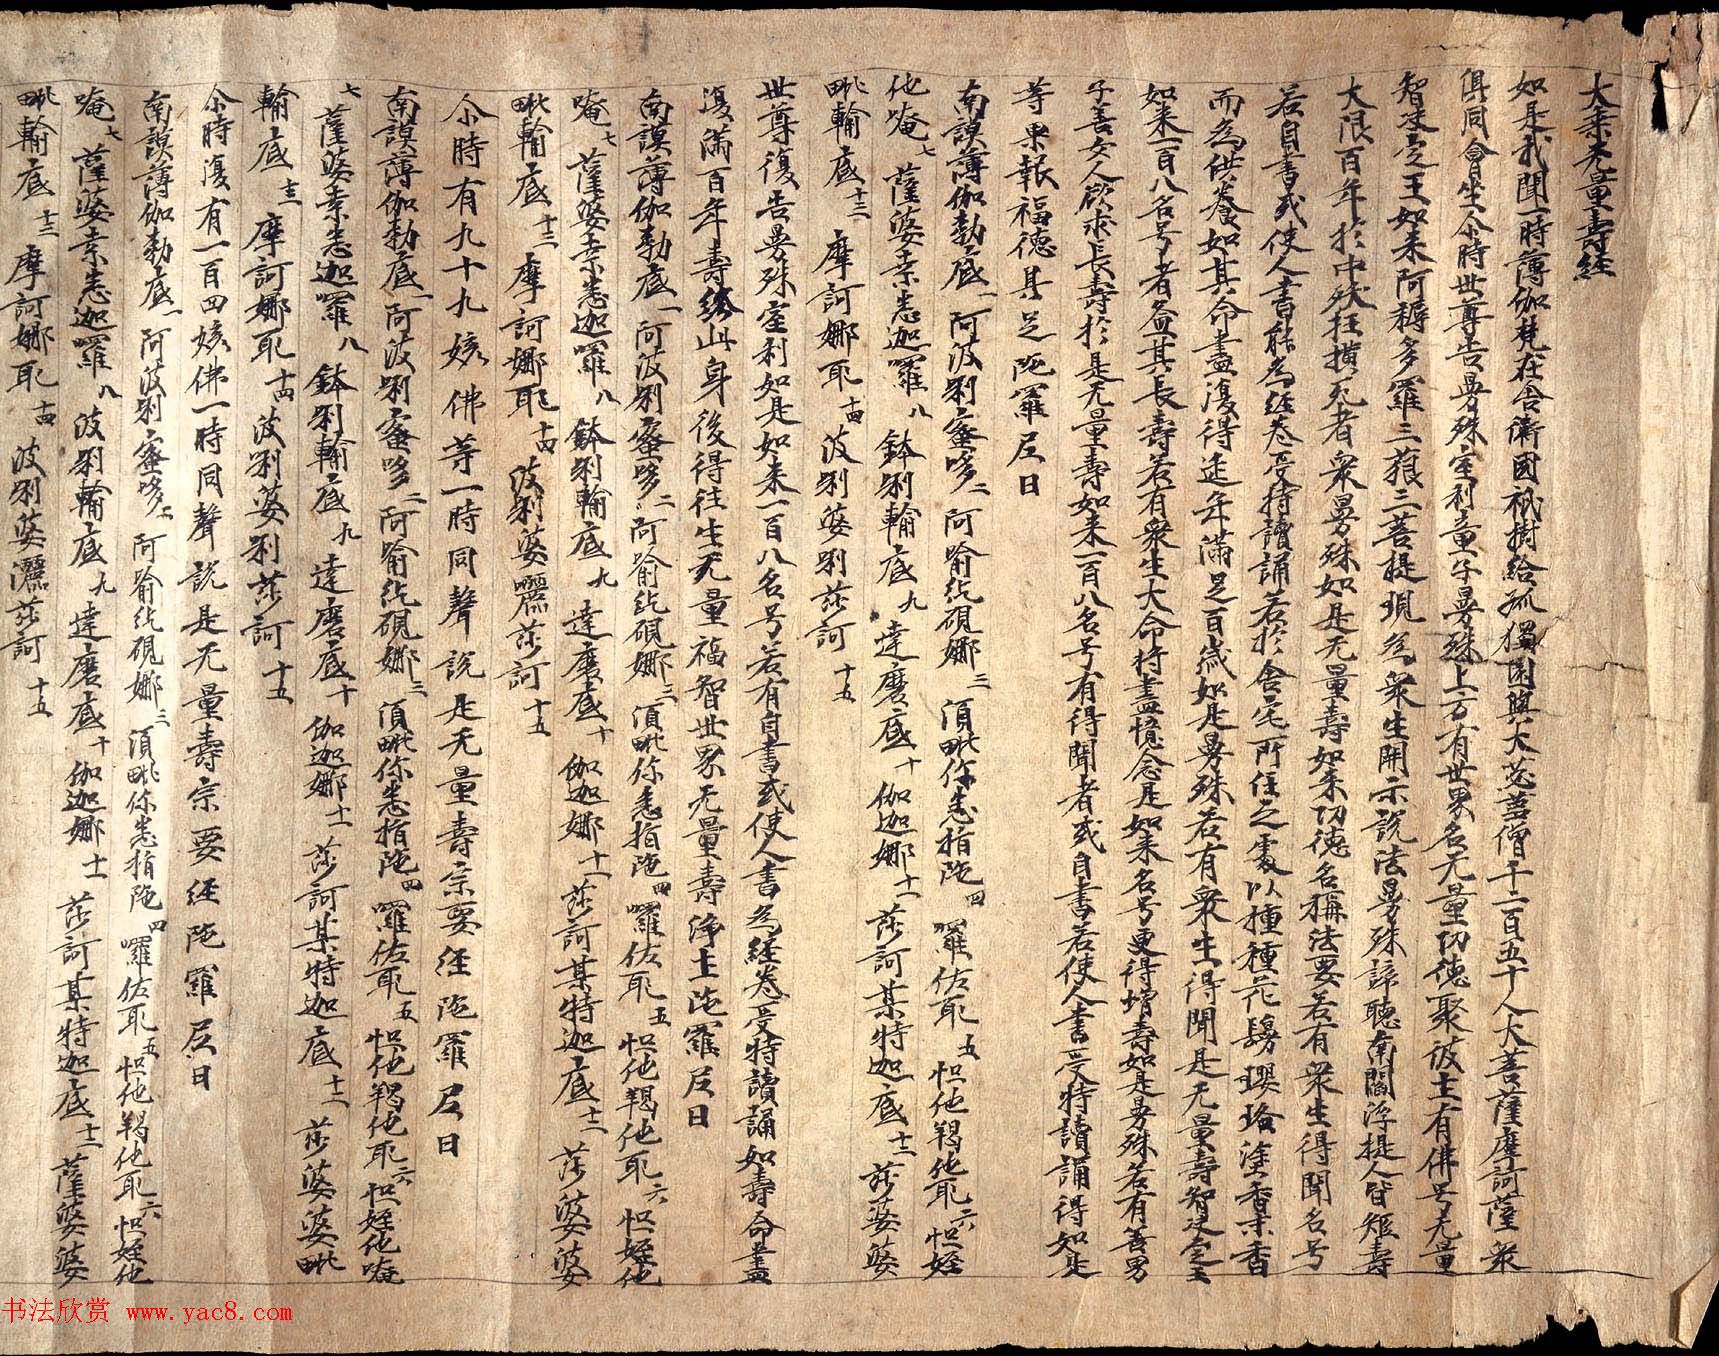 大乘无量壽經
如是我聞一時薄伽梵在舍衛國祇樹給孤獨園與大苾蒭僧千二百五十人大菩薩摩訶薩衆
俱同會坐尒時世尊告曼殊室利童子曼殊上方有世界名无量功德聚彼土有佛号无量
智决定王如来阿耨多羅三藐三菩提現为衆生開示說法曼殊諦聽南閻浮提人皆短壽
大限百年於中殀枉橫死者衆曼殊如是无量壽如来功德名稱法要若有衆生得聞名号
若自書或使人書能为經卷受持讀誦若於舍宅所住之處以種種花鬘瓔珞塗香末香
而为供養如其命盡復得延年滿足百歲如是曼殊若有衆生得聞是无量壽智决定王
如来一百八名号者益其長壽若有衆生大命将盡憶念是如来名号更得增壽如是曼殊若有善男
子善女人欲求長壽於是无量壽如来一百八名号有得聞者或自書若使人書受持讀誦得如是
等果報福德具足陁羅尼曰
南謨薄伽勃底一阿波唎蜜哆二阿喻紇硯娜三須毗你悉指陁四囉佐耶五怛他羯他耶六怛姪
他唵七薩婆桒悉迦囉八鉢唎輸底九達磨底十伽迦娜十一莎訶某特迦底十二莎婆婆
毗輸底十三摩訶娜耶十四波唎婆唎莎訶十五
世尊復告曼殊室利如是如来一百八名号若有自書或使人書为經卷受持讀誦如壽命盡
復滿百年壽終此身後得往生无量福智世界无量壽淨土陁羅尼曰
南謨薄伽勃底一阿波唎蜜哆二阿喻紇硯娜三須毗你悉指陁四囉佐耶五怛他羯他耶六怛姪他
唵七薩婆桒悉迦囉八鉢唎輸底九達磨底十伽迦娜十一莎訶某特迦底十二莎婆婆
毗輸底十三摩訶娜耶十四波唎婆囇莎訶十五
尒時有九十九姟佛等一時同聲說是无量壽宗要經陁羅尼曰
南謨薄伽勃底一阿波唎蜜哆二阿喻紇硯娜三須毗你悉指陁四囉佐耶五怛他羯他耶六怛姪他唵
七薩婆桒悉迦囉八鉢唎輸底九達磨底十伽迦娜十一莎訶某特迦底十二莎婆婆毗
輸底十三摩訶娜耶十四波唎婆唎莎訶十五
尒時復有一百四姟佛一時同聲說是无量壽宗要經陁羅尼曰
南謨薄伽勃底一阿波唎蜜哆二阿喻紇硯娜三須毗你悉指陁四囉佐耶五怛他羯他耶六怛姪他
唵七薩婆桒悉迦囉八波唎輸底九達磨底十伽迦娜十一莎訶某特迦底十二薩婆婆
毗輸底十三摩訶娜耶十四波唎婆灑莎訶十五
书法欣赏 www.yac8.com